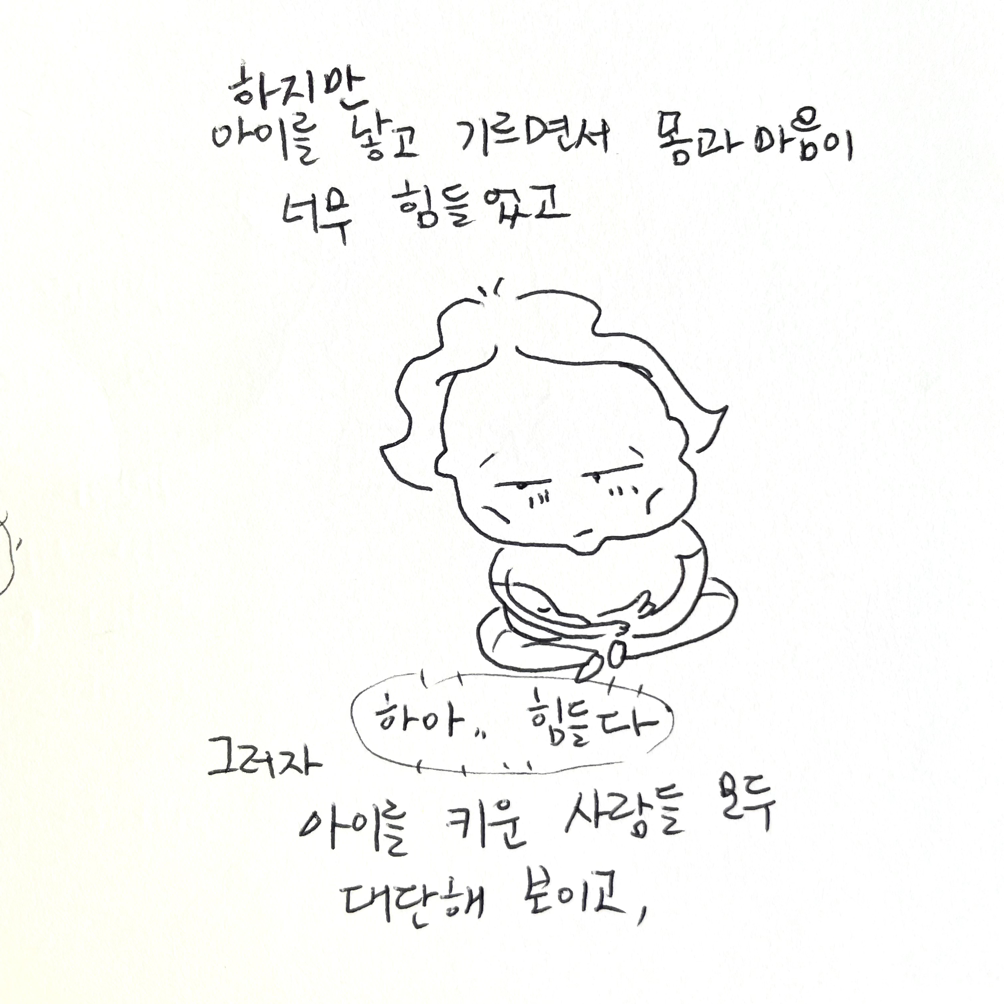 하지만
아이를 낳고 기르면서 몸과 마음이
너무 힘들었고
하아.. 힘들다
그러자
아이를 키운 사람들 모두
대단해 보이고,